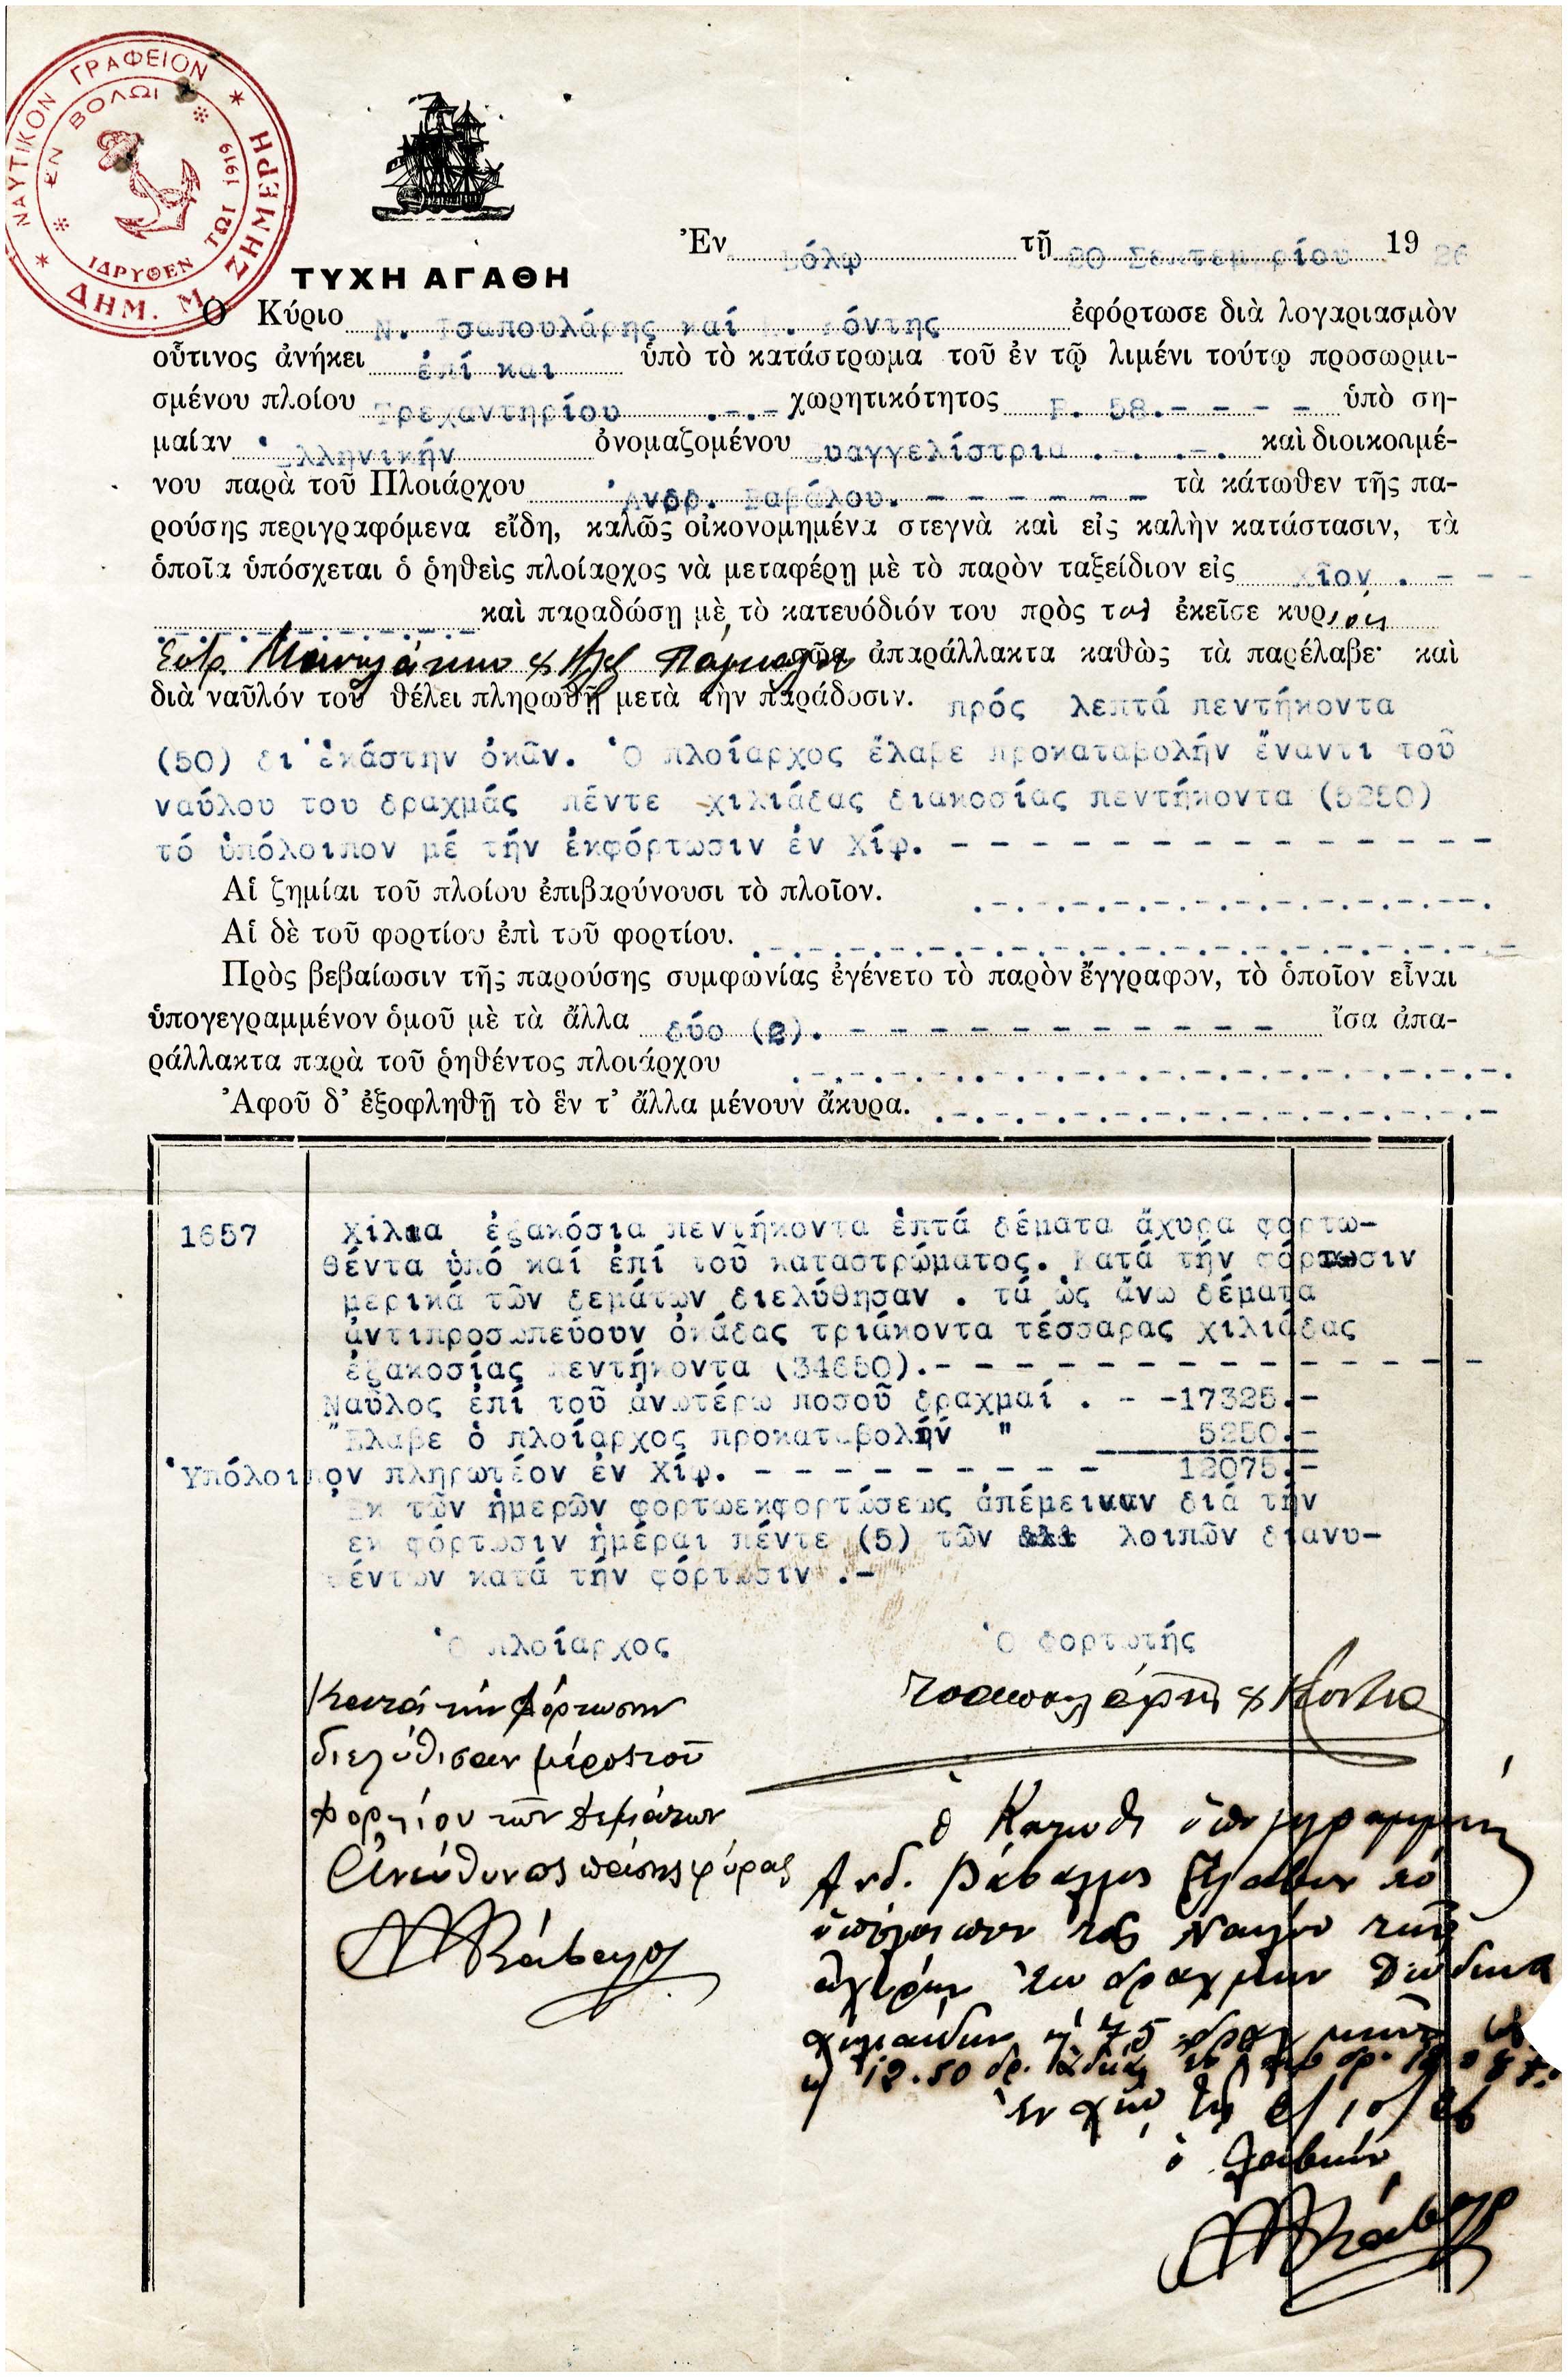 ΝΑΥΤΙΚΟΝ ΓΡΑΦΕΙΟΝ
ΔΗΜ. Μ. ΖΗΜΕΡΗ
ΕΝ ΒΟΛΩΙ
ΙΔΡΥΘΕΝ ΤΩΙ 1919
Ἐν Βόλῳ τῇ 20 Σεπτεμβρίου 19 26
ΤΥΧΗ ΑΓΑΘΗ
Ὁ Κύριο Ν. Τσαπουλάρης καί Κ. Κόντης ἐφόρτωσε διὰ λογαριασμὸν
οὗτινος ἀνήκει ἐπί και ὑπὸ τὸ κατάστρωμα τοῦ ἐν τῷ λιμένι τούτῳ προσωρμι-
σμένου πλοίου Τρεχαντηρίου .-.- χωρητικότητος Τ. 58.- - - - ὑπὸ ση-
μαίαν Ἑλληνικήν ὀνομαζομένου Εὐαγγελίστρια .-. -. καὶ διοικουμέ-
νου παρὰ τοῦ Πλοιάρχου Ἀνδρ. Βαβάλου. - - - - - - τὰ κάτωθεν τῆς πα-
ρούσης περιγραφόμενα εἴδη, καλῶς οἰκονομημένα στεγνὰ καὶ εἰς καλὴν κατάστασιν, τὰ
ὁποῖα ὑπόσχεται ὁ ῥηθεὶς πλοίαρχος νὰ μεταφέρῃ μὲ τὸ παρὸν ταξείδιον εἰς Χῖον . - - -
καὶ παραδώσῃ μὲ τὸ κατευόδιόν του πρὸς τοὺς ἐκεῖσε κυρίους
σῶα ἀπαράλλακτα καθὼς τὰ παρέλαβε· καὶ
διὰ ναῦλόν του θέλει πληρωθῇ μετὰ τὴν παράδοσιν. πρός λεπτά πεντήκοντα
(50) δι'ἑκάστην ὀκᾶν. Ὁ πλοίαρχος ἔλαβε προκαταβολήν ἔναντι τοῦ
ναύλου του δραχμάς πέντε χιλιάδας διακοσίας πεντήκοντα (5250)
τό ὑπόλοιπον μέ τήν ἐκφόρτωσιν ἐν Χίῳ. - - - - - - - - - - - - - -
Αἱ ζημίαι τοῦ πλοίου ἐπιβαρύνουσι τὸ πλοῖον.
Αἱ δὲ τοῦ φορτίου ἐπὶ τοῦ φορτίου.
Πρὸς βεβαίωσιν τῆς παρούσης συμφωνίας ἐγένετο τὸ παρὸν ἔγγραφον, τὸ ὁποῖον εἶναι
ὑπογεγραμμένον ὁμοῦ μὲ τὰ ἄλλα δύο (2). - - - - - - - - - - - ἴσα ἀπα-
ράλλακτα παρὰ τοῦ ῥηθέντος πλοιάρχου
Ἀφοῦ δ' ἐξοφληθῇ τὸ ἓν τ' ἄλλα μένουν ἄκυρα.
1657 Χίλια ἑξακόσια πεντήκοντα ἑπτά δέματα ἄχυρα φορτω-
θέντα ὑπό καί ἐπί τοῦ καταστρώματος. Κατά τήν φόρτωσιν
μερικά τῶν δεμάτων διελύθησαν . τά ὡς ἄνω δέματα
ἀντιπροσωπεύουν ὀκάδας τριάκοντα τέσσαρας χιλιάδας
ἑξακοσίας πεντήκοντα (34650).- - - - - - - - - - - - - - -
Ναῦλος ἐπί τοῦ ἀνωτέρω ποσοῦ δραχμαί . - -17325.-
Ἔλαβε ὁ πλοίαρχος προκαταβολήν " 5250.-
Ὑπόλοιπον πληρωτέον ἐν Χίῳ. - - - - - - - - - 12075.-
Ἐκ τῶν ἡμερῶν φορτωεκφορτώσεως ἀπέμειναν διά τήν
εκ φόρτωσιν ἡμέραι πέντε (5) τῶν λοιπῶν διανυ-
θέντων κατά τήν φόρτωσιν .-
Ὁ πλοίαρχος Ὁ Φορτωτής
Κατά την φόρτωσην
διελύθισαν μέρος τοῦ
φορτίου τῶν δεμάτων
Ανεύθυνος πάσης φύρας
Α Βάβαλος
Τσαπουλάρης & Κόντης
ὁ Κάτωθι ὑπογεγραμμένος
Ανδ. Βάβαλος ἔλαβον τό
ὑπόλοιπον τοῦ Ναύλου τῶν
ἀχύρων ἐκ δραχμῶν Δώδεκα
χιλιάδων 75
12.50 δρ.
Ἐν Χίῳ τῇ 2/10/26
ὁ λαβών
Α Βάβαλος